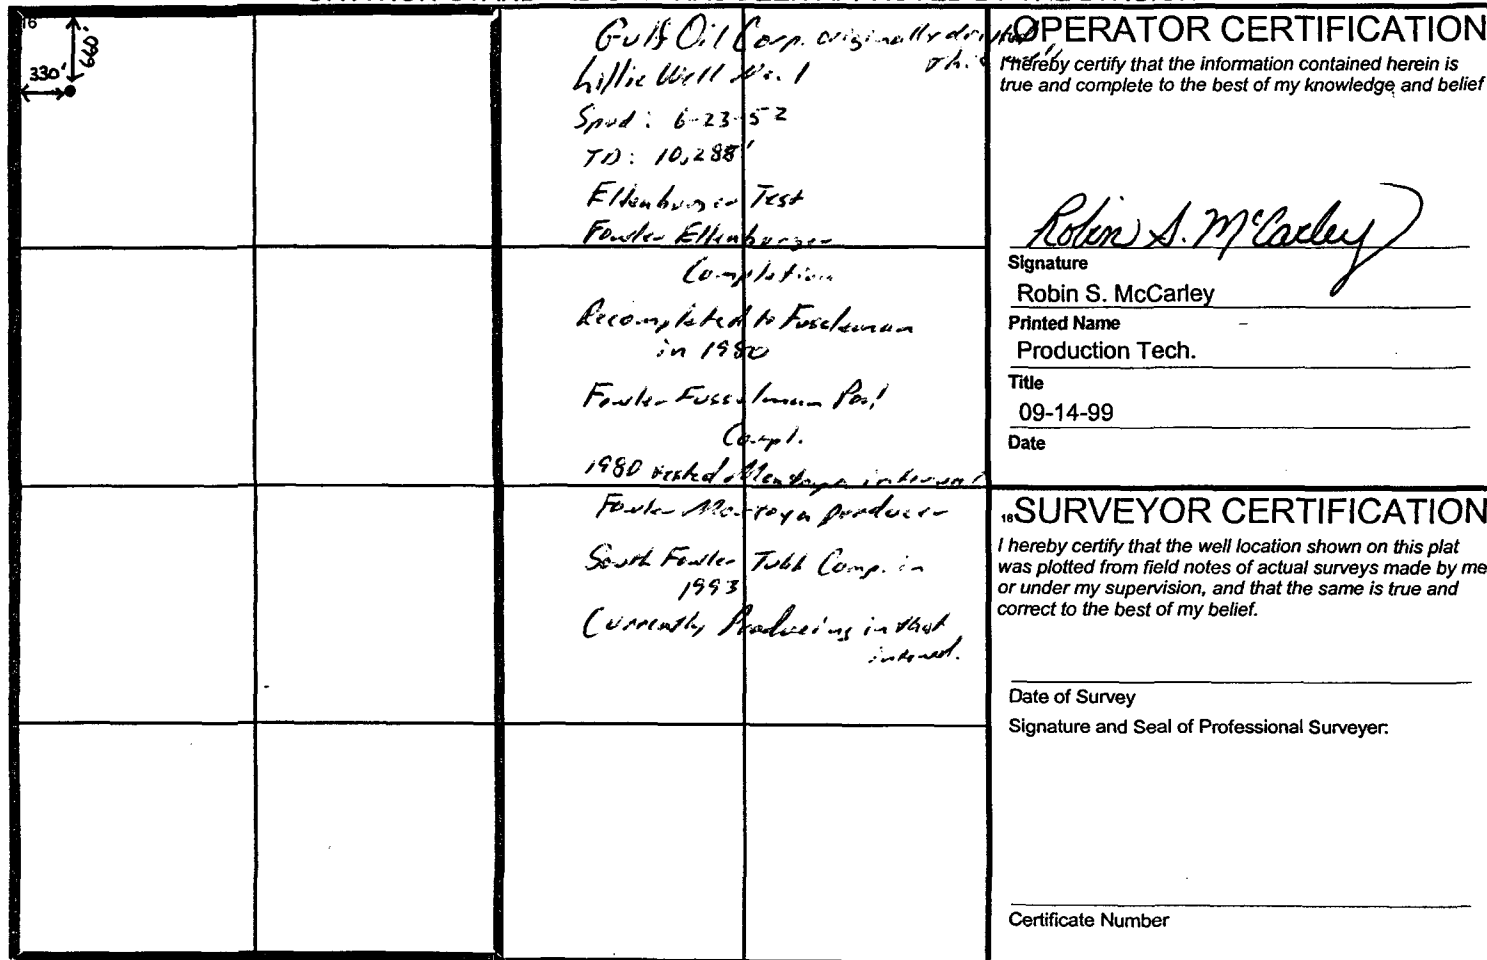 16
660'
330'
Gulf Oil Corp. originally drilled
this well
Lillie Well No. 1
Spud: 6-23-52
TD: 10,288'
Ellenburger Test
Fowler Ellenburger
Completion
Recompleted to Fusselman
in 1980
Fowler Fusselman Pool
Compl.
1980 tested Montoya interval
Fowler Montoya producer
South Fowler Tubb Comp. in
1993
Currently Producing in that
interval.
OPERATOR CERTIFICATION
I hereby certify that the information contained herein is
true and complete to the best of my knowledge and belief
Robin S. McCarley
Signature
Robin S. McCarley
Printed Name
Production Tech.
Title
09-14-99
Date
18 SURVEYOR CERTIFICATION
I hereby certify that the well location shown on this plat
was plotted from field notes of actual surveys made by me
or under my supervision, and that the same is true and
correct to the best of my belief.
Date of Survey
Signature and Seal of Professional Surveyer:
Certificate Number